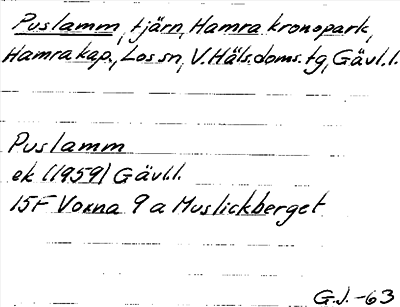 Puslamm, tjärn, Hamra kronopark,
Hamra kap., Los sn, V. Häls. doms. tg, Gävl. l.
Puslamm
ek (1959) Gävl.l.
15F Voxna 9 a Muslickberget
G.J. -63